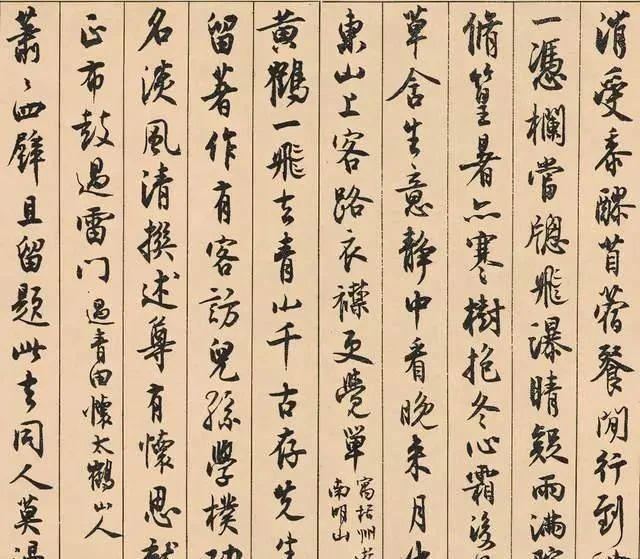 消受黍醪苜蓿餐閒行到
一憑欄當牕飛瀑晴疑雨滿
脩篁暑亦寒樹抱冬心霜後
草含生意靜中看晚來月出
東山上客路衣襟更覺單 寓括州
南明山
黃鶴一飛去青山千古存先生
留著作有客訪兒孫學樸
名淡風清撰述尊有懷思就
正布鼓過雷門 過青田懷太鶴山人
蕭〻四壁且留題此去同人莫